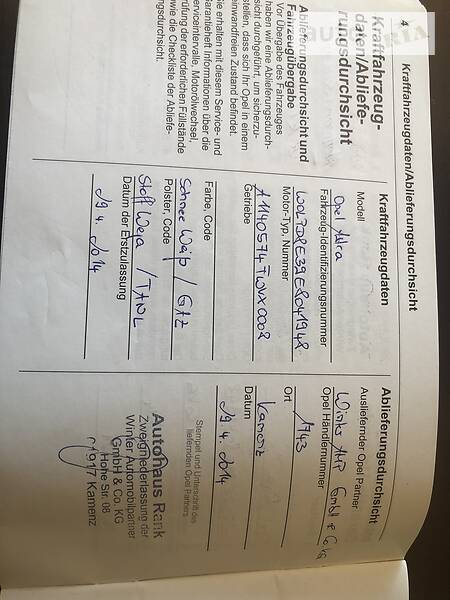 4
Kraftfahrzeugdaten/Ablieferungsdurchsicht
Kraftfahrzeug-
daten/Abliefe-
rungsdurchsicht
Ablieferungsdurchsicht und
Fahrzeugübergabe
Vor Übergabe des Fahrzeuges
haben wir eine Ablieferungsdurch-
sicht durchgeführt, um sicherzu-
stellen, dass sich Ihr Opel in einem
einwandfreien Zustand befindet.
Sie erhalten mit diesem Service- und
Garantieheft Informationen über die
Serviceintervalle, Motorölwechsel,
Prüfung der erforderlichen Füllstände
sowie die Checkliste der Abliefe-
rungsdurchsicht.
Kraftfahrzeugdaten
Modell
Opel Astra
Fahrzeug-Identifizierungsnummer
Motor-Typ, Nummer
Getriebe
Farbe, Code
Schnee Weiß / GAZ
Polster, Code
Stoff / TAWL
Datum der Erstzulassung
29.4.2014
Ablieferungsdurchsicht
Ausliefernder Opel Partner
Winter AMP GmbH & Co KG
Opel Händlernummer
1743
Ort
Kamenz
Datum
29.4.2014
Stempel und Unterschrift des
liefernden Opel Partners
Autohaus Rank
Zweigniederlassung der
Winter Automobilpartner
GmbH & Co. KG
Hohe Str. 08
01917 Kamenz